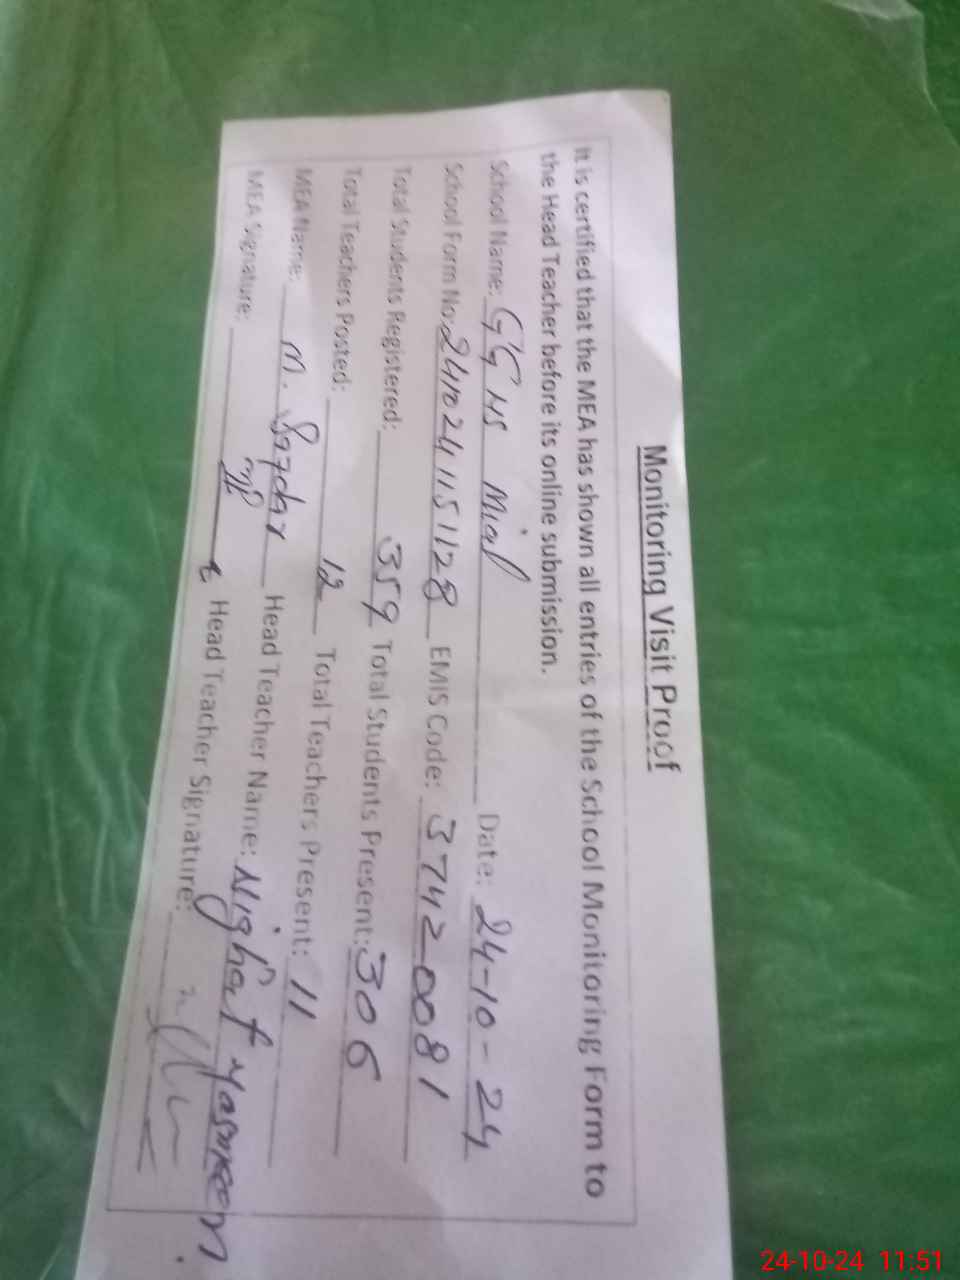 Monitoring Visit Proof
It is certified that the MEA has shown all entries of the School Monitoring Form to
the Head Teacher before its online submission.
School Name: GGHS Mial Date: 24-10-24
School Form No: 2410241151128 EMIS Code: 37420081
Total Students Registered: 359 Total Students Present: 306
Total Teachers Posted: 12 Total Teachers Present: 11
MEA Name: M. Safdar Head Teacher Name: Nighat Yasmeen
MEA Signature: Head Teacher Signature:
24-10-24 11:51